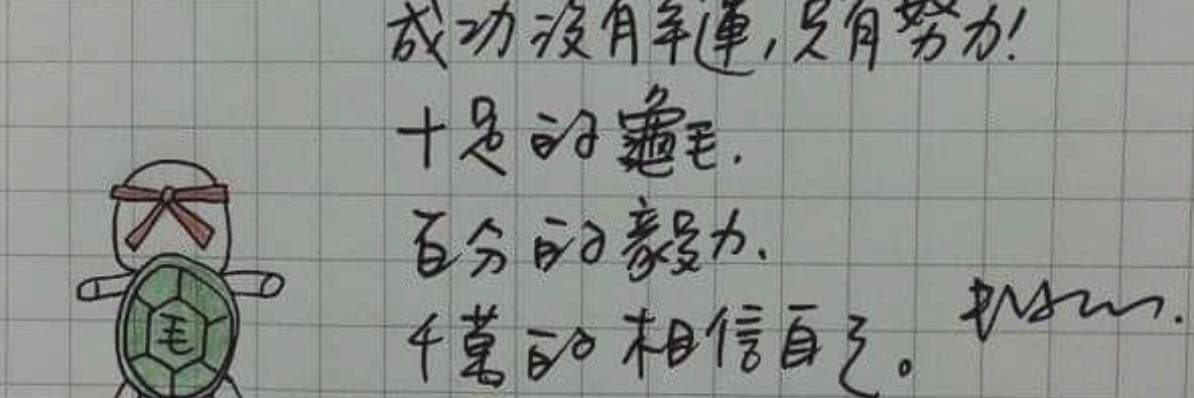 成功沒有幸運,只有努力!
十足的龜毛.
百分的毅力.
千萬的相信自己。
毛